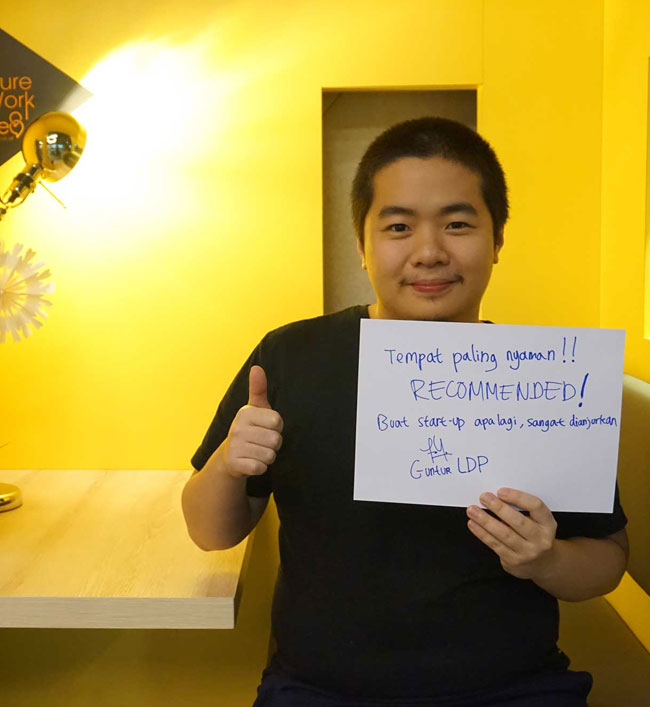 Tempat paling nyaman!!
RECOMMENDED!
Buat start-up apalagi, sangat dianjurkan
Guntur LDP
ure
Work